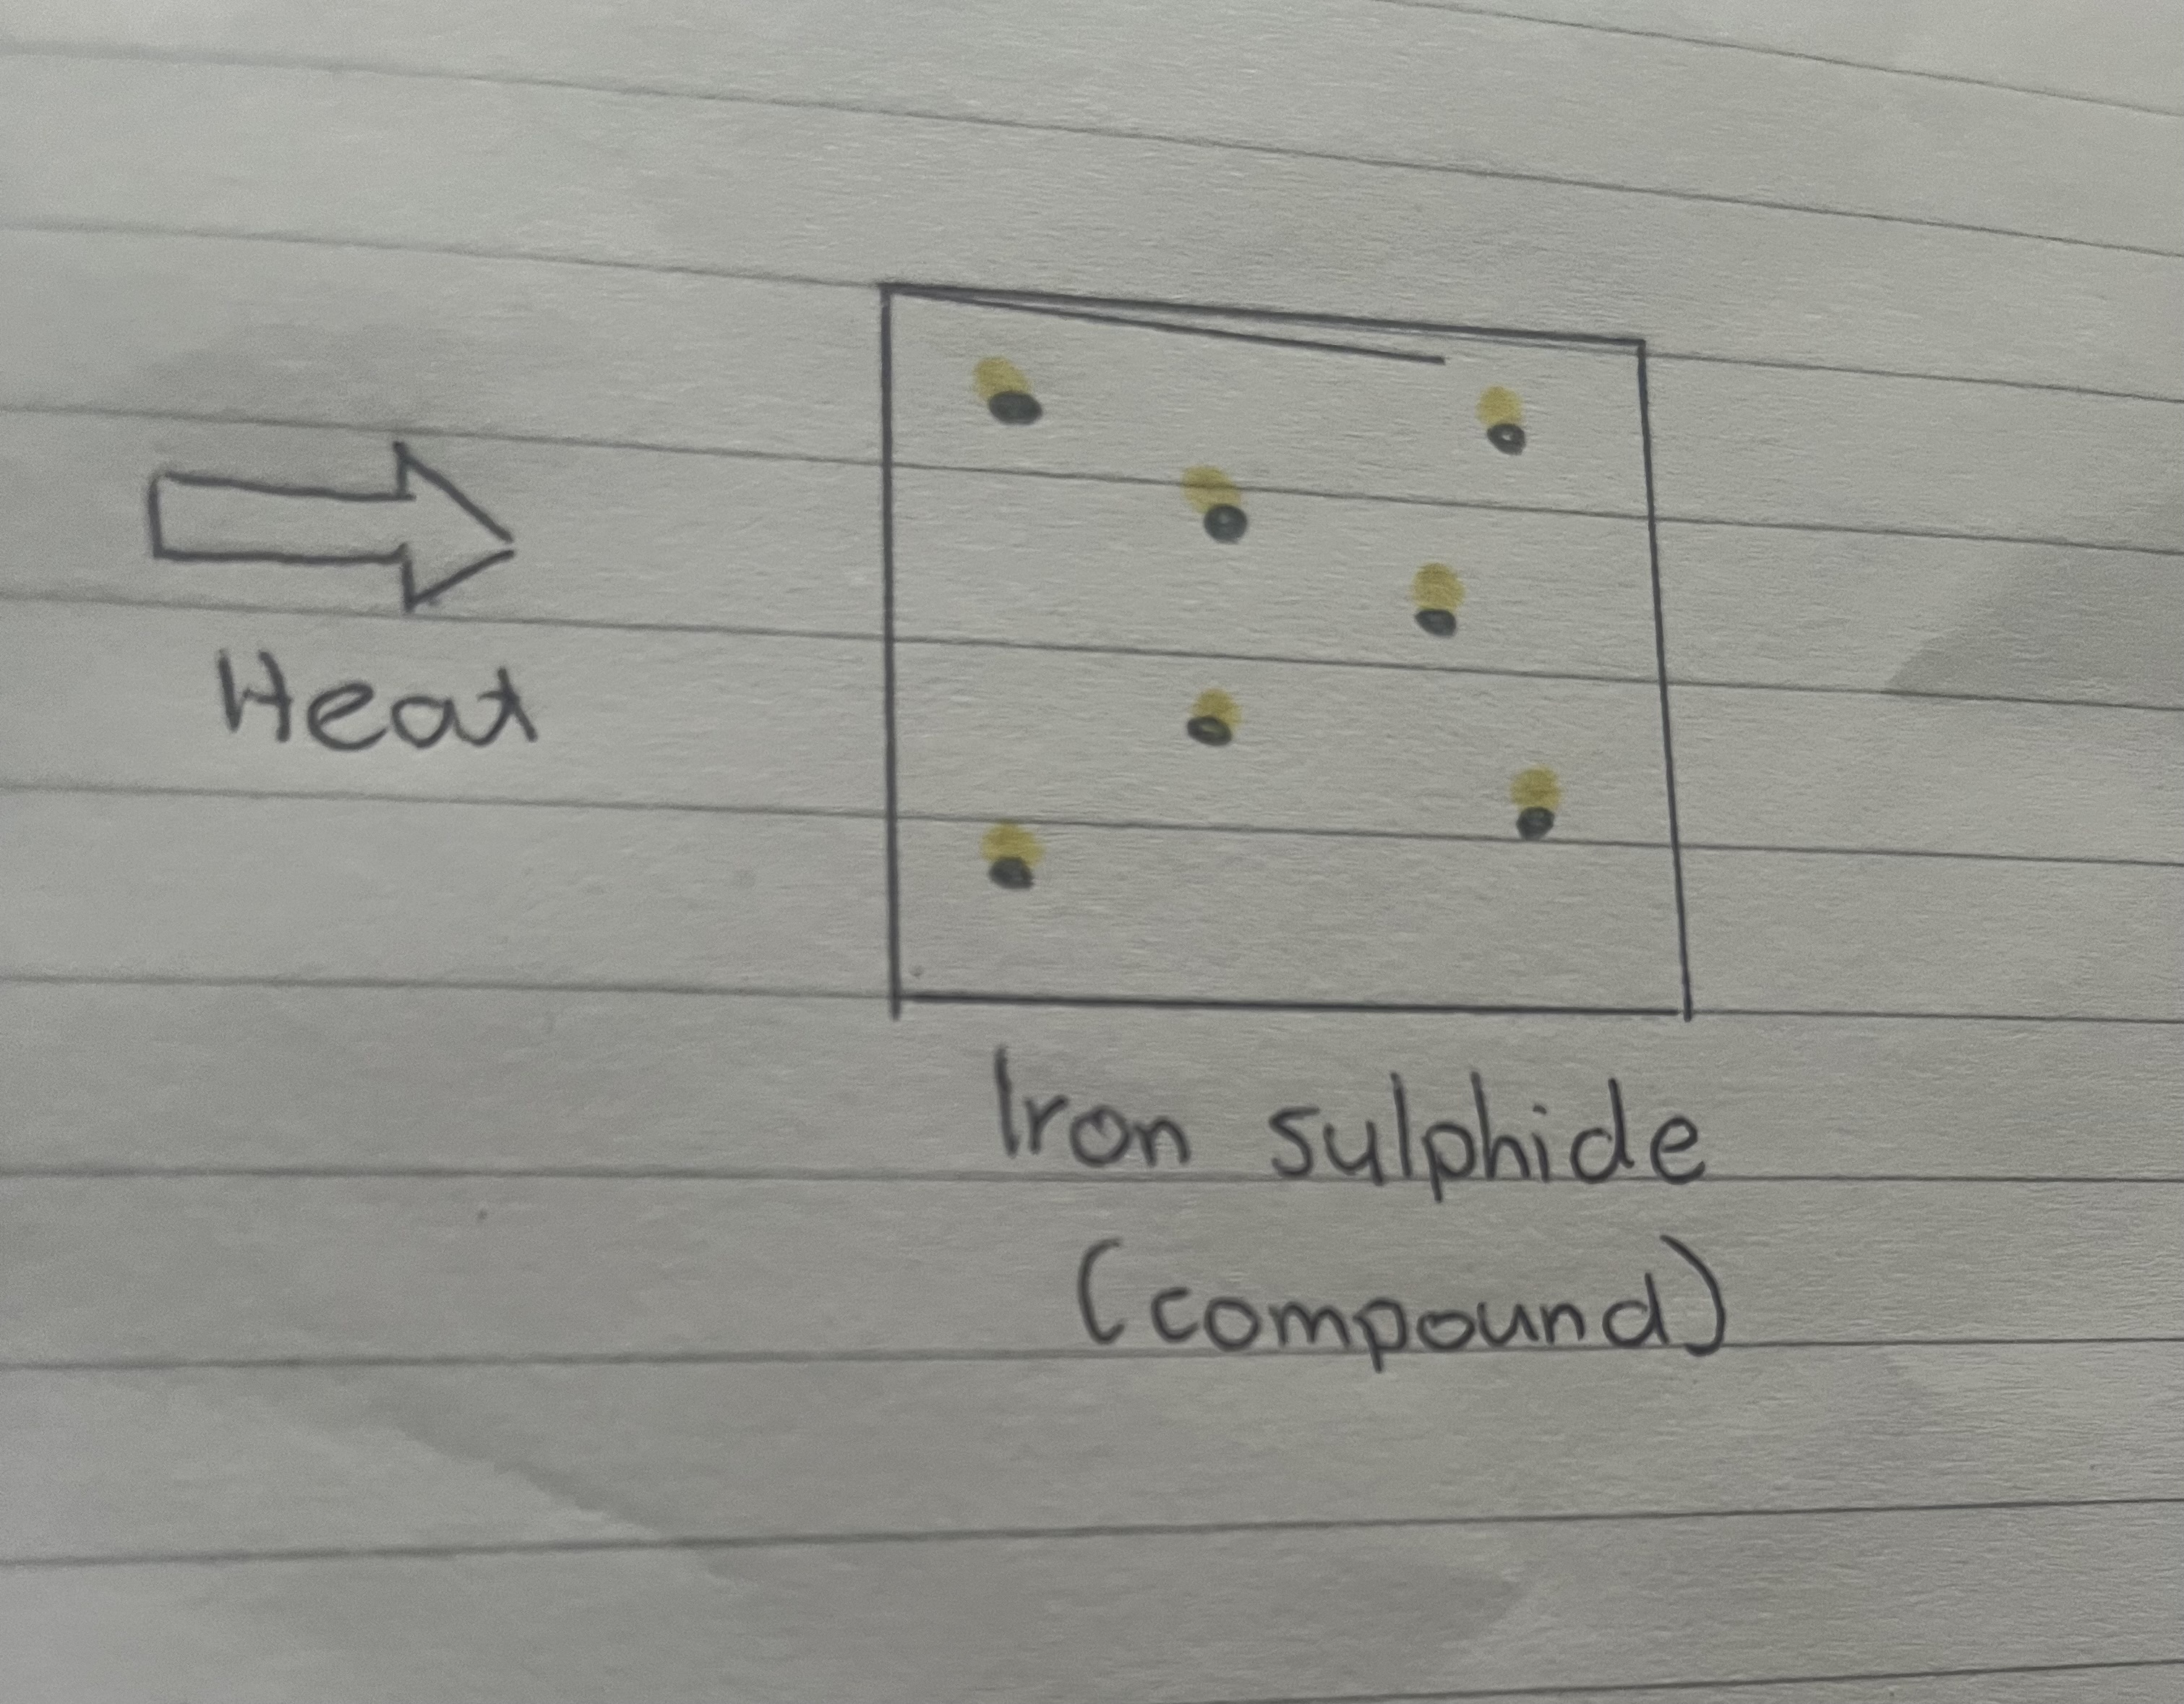 Heat
Iron sulphide
(compound)